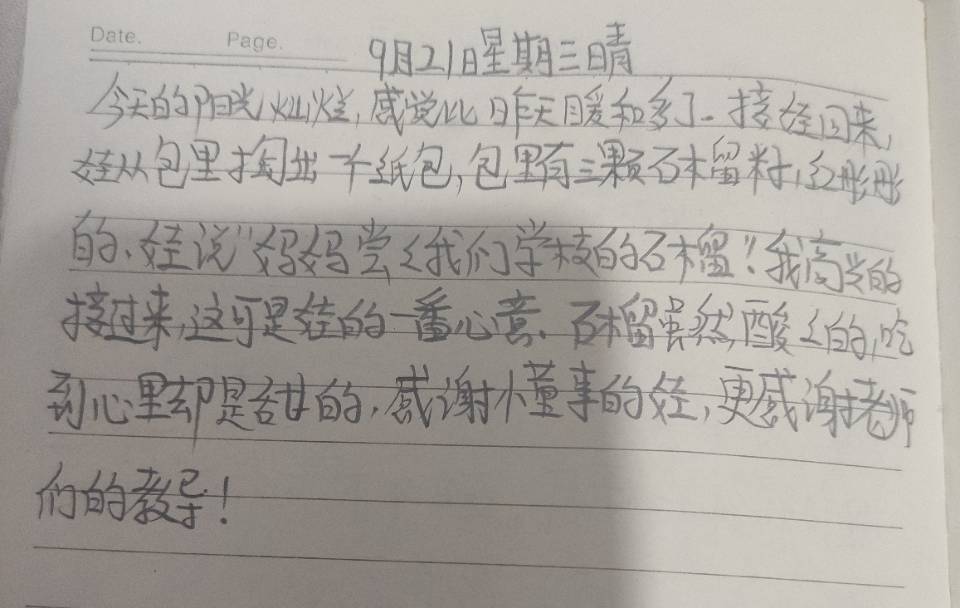 Date. Page.
9月21日星期三晴
今天的阳光灿烂,感觉比昨天暖和多了.接娃回来,
娃从包里掏出一个纸包,包里有三颗石榴籽,红彤彤
的.娃说"妈妈尝々我们学校的石榴"!我高兴的
接过来,这可是娃的一番心意.石榴虽然酸々的,吃
到心里却是甜的,感谢懂事的娃,更感谢老师
们的教导!